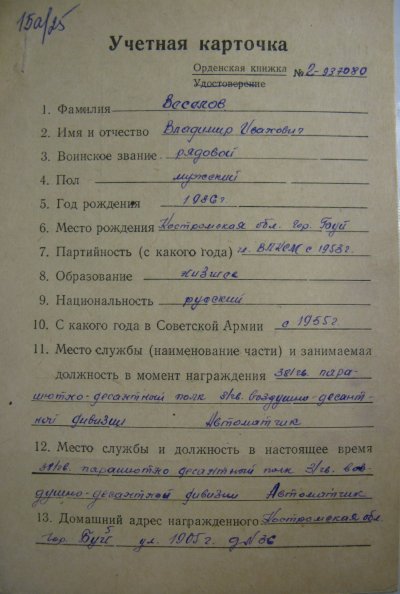 15а/25
Учетная карточка
Орденская книжка
Удостоверение № 2-937080
1. Фамилия Веселов
2. Имя и отчество Владимир Иванович
3. Воинское звание рядовой
4. Пол мужский
5. Год рождения 1936 г.
6. Место рождения Костромская обл. гор. Буй
7. Партийность (с какого года) чл. ВЛКСМ с 1953 г.
8. Образование низшее
9. Национальность русский
10. С какого года в Советской Армии с 1955 г.
11. Место службы (наименование части) и занимаемая
должность в момент награждения 381 гв. пара-
шютно-десантный полк 31 гв. воздушно-десант-
ной дивизии Автоматчик
12. Место службы и должность в настоящее время
381 гв. парашютно десантный полк 31 гв. воз-
душно-десантной дивизии Автоматчик
13. Домашний адрес награжденного Костромская обл.
гор. Буй ул. 1905 г. д № 36